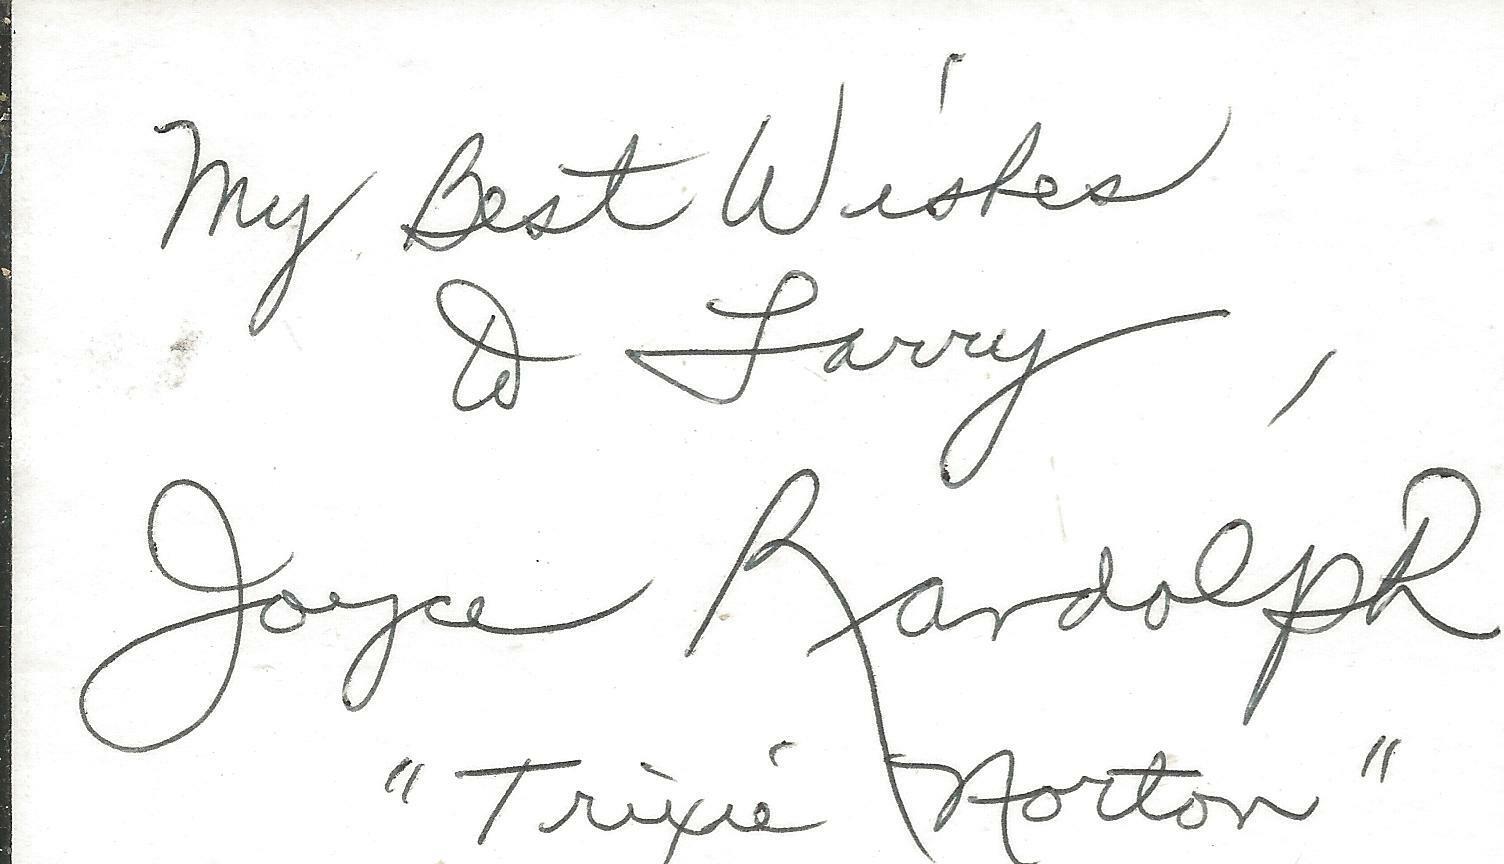 My Best Wishes
to Larry
Joyce Randolph
"Trixie Norton"